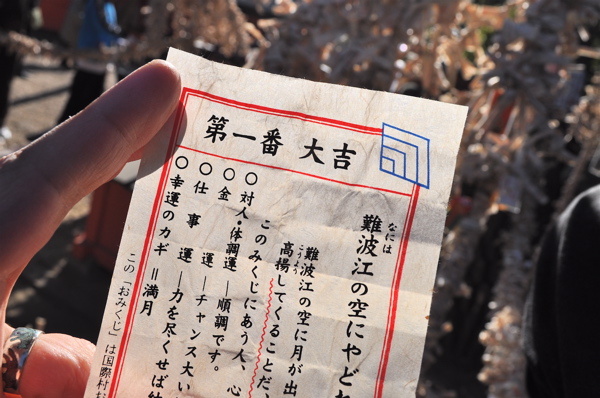 第一番 大吉
難波江の空にやど
なには
難波江の空に月が出
高揚してくることだ、
こうよう
このみくじにあう人、心
○対人・体調運―順調です。
○金
○仕事運―チャンス大い
運―力を尽くせば
○幸運のカギ=満月
この「おみくじ」は国際村お